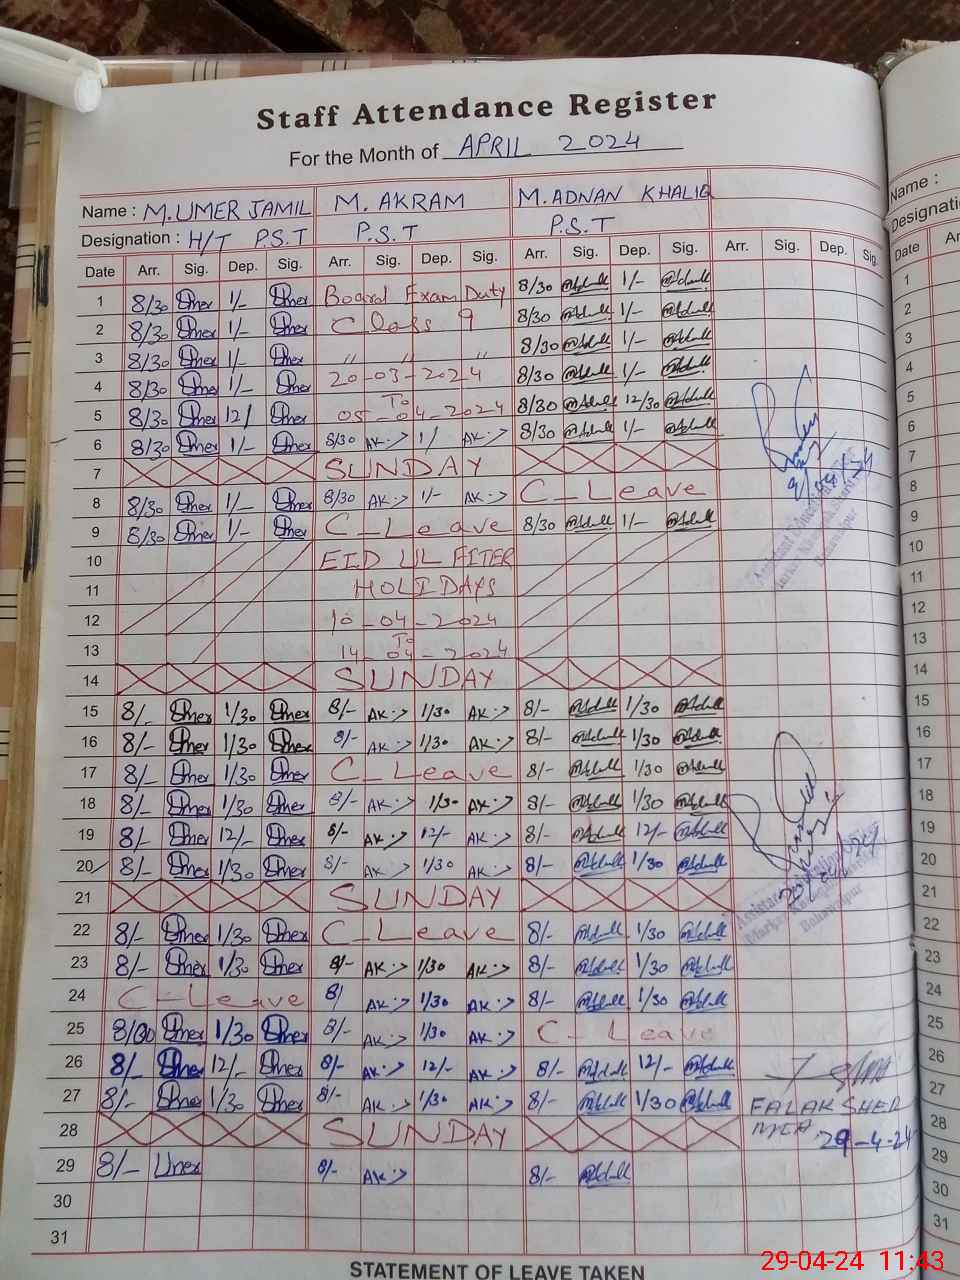 Staff Attendance Register
For the Month of APRIL 2024
Name : M. UMER JAMIL M. AKRAM M. ADNAN KHALIQ
Designation : H/T P.S.T P.S.T P.S.T
Date Arr. Sig. Dep. Sig. Arr. Sig. Dep. Sig. Arr. Sig. Dep. Sig. Arr. Sig. Dep. Sig.
1 8/30 Umer 1/- Umer Board Exam Duty 8/30 1/-
2 8/30 Umer 1/- Umer Class 9 8/30 1/-
3 8/30 Umer 1/- Umer " " " 8/30 1/-
4 8/30 Umer 1/- Umer 20-03-2024 8/30 1/-
To
5 8/30 Umer 12/ Umer 05-04-2024 8/30 12/30
6 8/30 Umer 1/- Umer 8/30 AK 1/ AK 8/30 1/-
7 SUNDAY
8 8/30 Umer 1/- Umer 8/30 AK 1/- AK C-Leave
9 8/30 Umer 1/- Umer C-Leave 8/30 1/-
10 EID UL FITER
11 HOLIDAYS
12 10-04-2024
To
13 14-04-2024
14 SUNDAY
15 8/- Umer 1/30 Umer 8/- AK 1/30 AK 8/- 1/30
16 8/- Umer 1/30 Umer 8/- AK 1/30 AK 8/- 1/30
17 8/- Umer 1/30 Umer C-Leave 8/- 1/30
18 8/- Umer 1/30 Umer 8/- AK 1/30 AK 8/- 1/30
19 8/- Umer 12/- Umer 8/- AK 12/- AK 8/- 12/-
20 8/- Umer 1/30 Umer 8/- AK 1/30 AK 8/- 1/30
21 SUNDAY
22 8/- Umer 1/30 Umer C-Leave 8/- 1/30
23 8/- Umer 1/30 Umer 8/- AK 1/30 AK 8/- 1/30
24 C-Leave 8/ AK 1/30 AK 8/- 1/30
25 8/00 Umer 1/30 Umer 8/- AK 1/30 AK C-Leave
26 8/- Umer 12/- Umer 8/- AK 12/- AK 8/- 12/-
27 8/- Umer 1/30 Umer 8/- AK 1/30 AK 8/- 1/30
FALAK SHER
28 SUNDAY
MEA 29-4-24
29 8/- Umer 8/- AK 8/-
30
31
STATEMENT OF LEAVE TAKEN
Name :
Designati
Date Ar
1
2
3
4
5
6
7
8
9
10
11
12
13
14
15
16
17
18
19
20
21
22
23
24
25
26
27
28
29
30
31
29-04-24 11:43